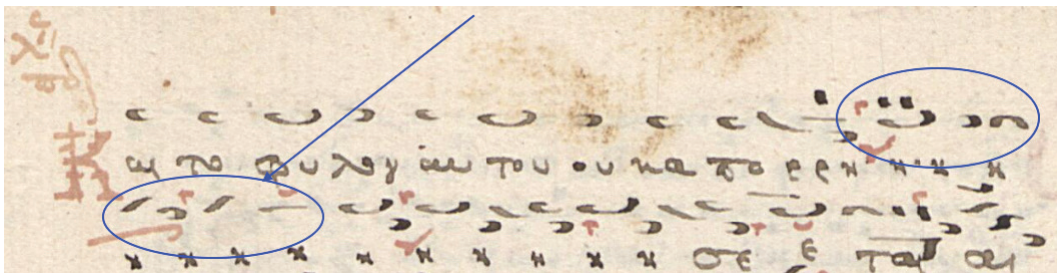 Και το φυ λον αυ του ου κα πο ρρη η η η
η η η η η η η η η η σε ε ται αι